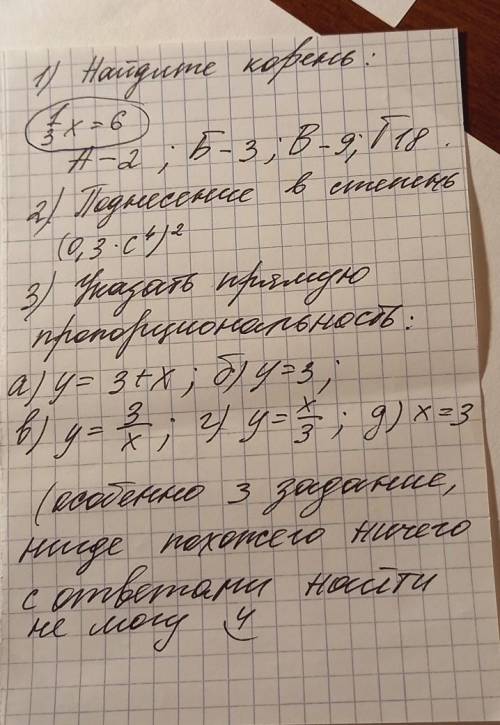 1) Найдите корень:
1/3 x = 6
А – 2 ; Б – 3 ; В – 9; Г 18.
2) Поднесение в степень
(0,3 · c⁴)²
3) Указать прямую
пропорциональность:
а) y = 3 + x ; б) y = 3 ;
в) y = 3/x ; г) y = x/3 ; д) x = 3
(особенно 3 задание,
нигде похожего ничего
с ответами найти
не могу